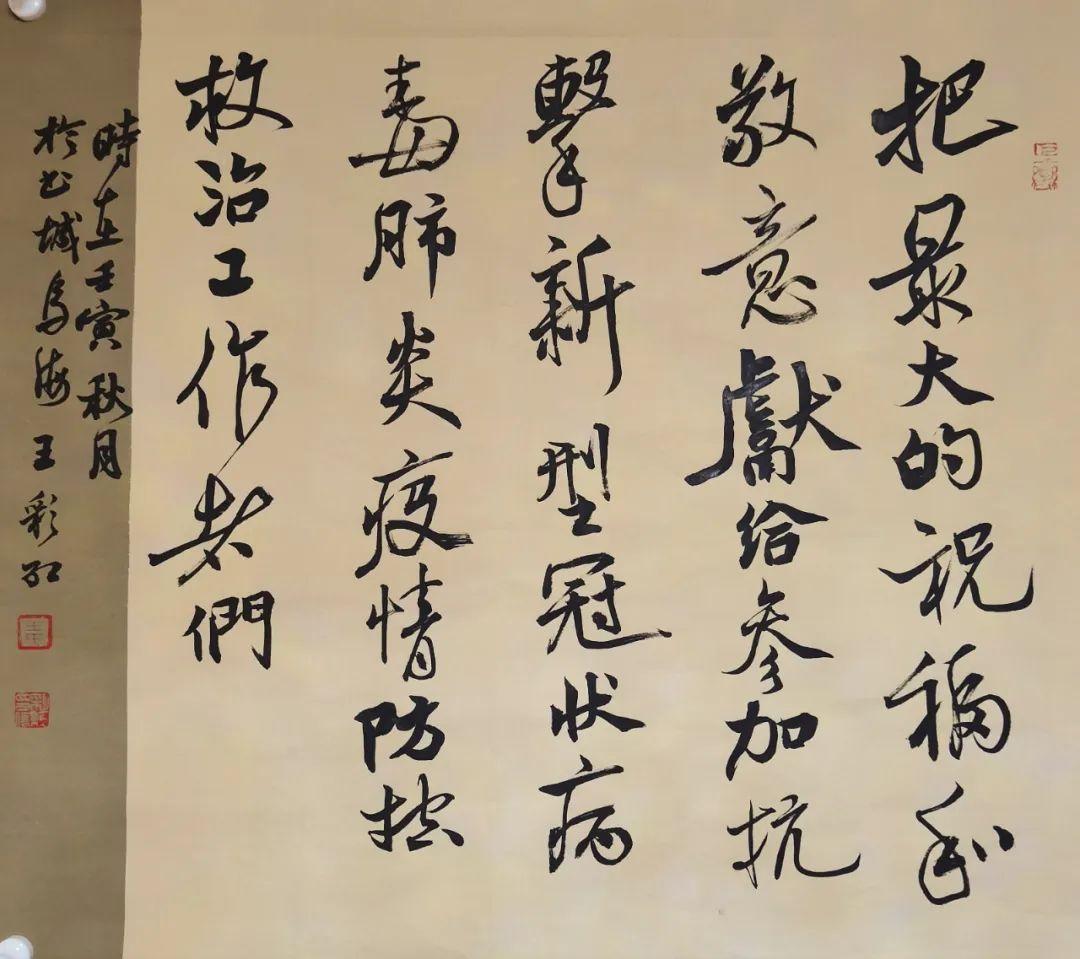 把最大的祝福和
敬意獻給参加抗
擊新型冠状病
毒肺炎疫情防控
救治工作者們
時在壬寅秋月
於书城烏海王彩红